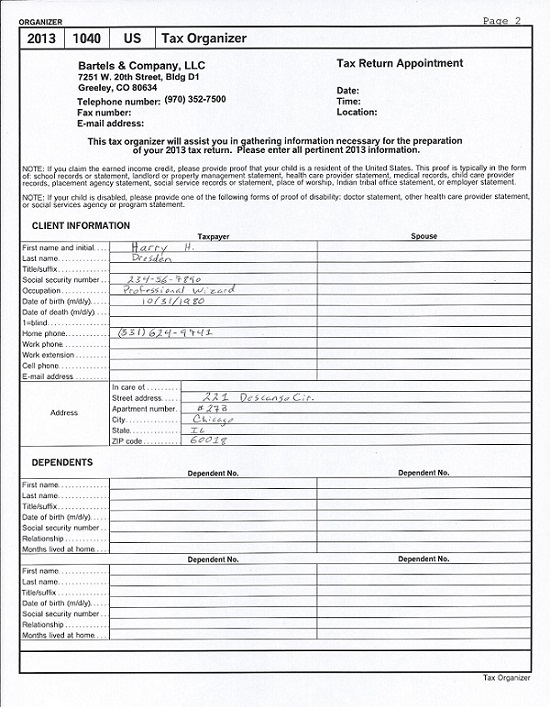 ORGANIZER Page 2
2013 1040 US Tax Organizer
Bartels & Company, LLC Tax Return Appointment
7251 W. 20th Street, Bldg D1
Greeley, CO 80634 Date:
Telephone number: (970) 352-7500 Time:
Fax number: Location:
E-mail address:
This tax organizer will assist you in gathering information necessary for the preparation
of your 2013 tax return. Please enter all pertinent 2013 information.
NOTE: If you claim the earned income credit, please provide proof that your child is a resident of the United States. This proof is typically in the form
of: school records or statement, landlord or property management statement, health care provider statement, medical records, child care provider
records, placement agency statement, social service records or statement, place of worship, Indian tribal office statement, or employer statement.
NOTE: If your child is disabled, please provide one of the following forms of proof of disability: doctor statement, other health care provider statement,
or social services agency or program statement.
CLIENT INFORMATION
Taxpayer Spouse
First name and initial Harry H.
Last name Dresden
Title/suffix
Social security number 234-56-7890
Occupation Professional Wizard
Date of birth (m/d/y) 10/31/1980
Date of death (m/d/y)
1=blind
Home phone (531) 624-9741
Work phone
Work extension
Cell phone
E-mail address
Address
In care of
Street address 221 Descanso Cir.
Apartment number #27B
City Chicago
State IL
ZIP code 60018
DEPENDENTS
Dependent No. Dependent No.
First name
Last name
Title/suffix
Date of birth (m/d/y)
Social security number
Relationship
Months lived at home
Dependent No. Dependent No.
First name
Last name
Title/suffix
Date of birth (m/d/y)
Social security number
Relationship
Months lived at home
Tax Organizer